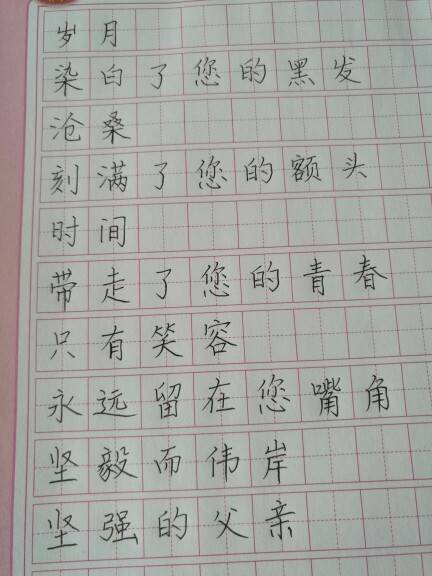 岁月
染白了您的黑发
沧桑
刻满了您的额头
时间
带走了您的青春
只有笑容
永远留在您嘴角
坚毅而伟岸
坚强的父亲